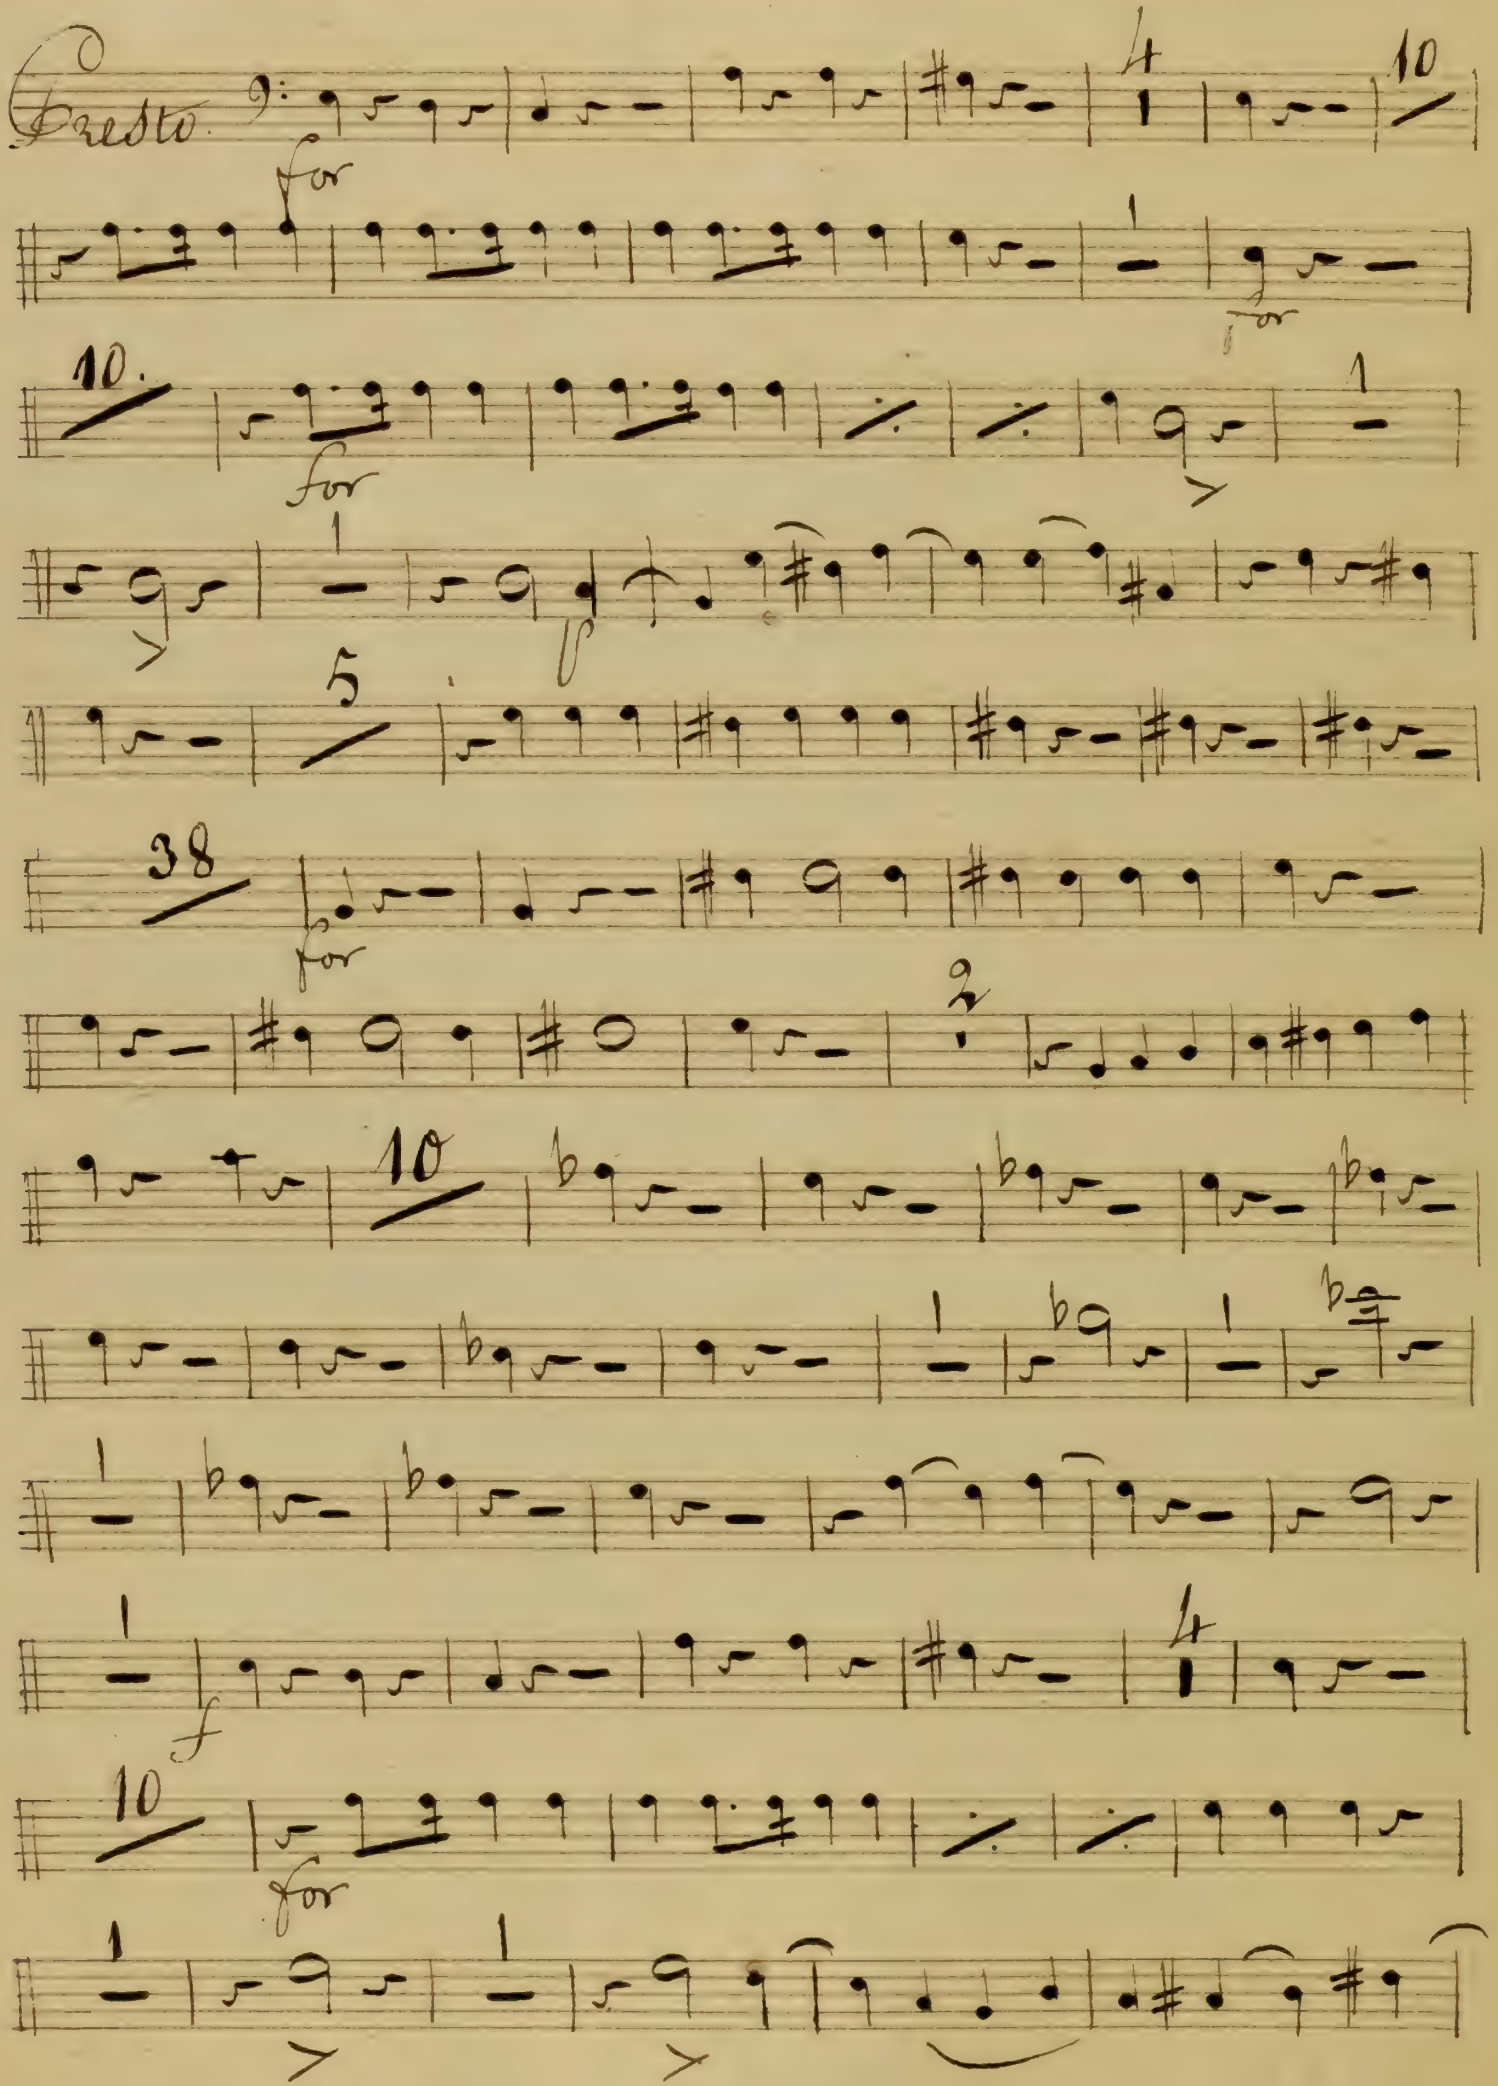 4 10
Presto.
for
1
for
10. 1
for
1
p
5
38
for
2
10
1 1
1
1 4
f
10
for
1 1